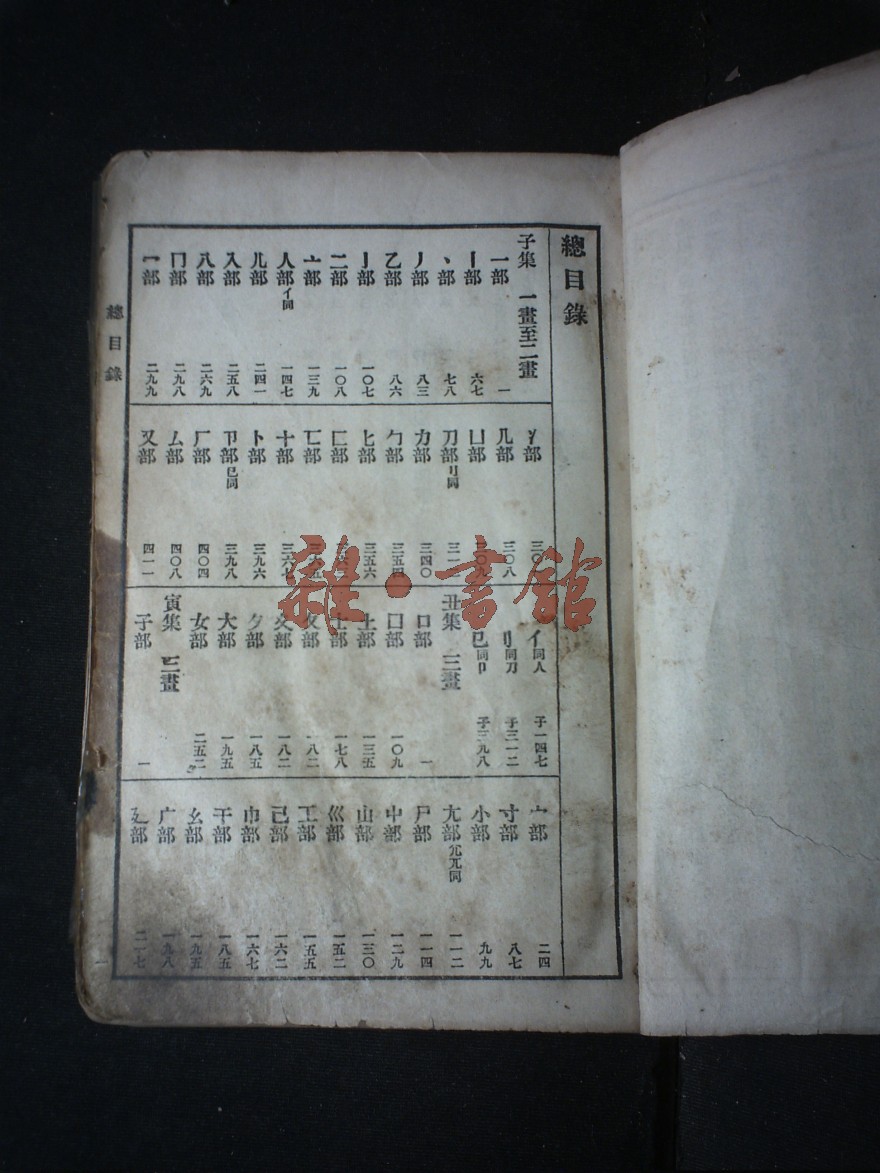 總目錄
子集 一畫至二畫
一部 一
丨部 六七
丶部 七八
丿部 八三
乙部 八六
亅部 一〇七
二部 一〇八
亠部 一三九
人部 亻同 一四七
儿部 二四一
入部 二五八
八部 二六九
冂部 二九八
冖部 二九九
冫部
几部 三〇八
凵部 三〇九
刀部 刂同
力部 三四〇
勹部 三五四
匕部 三五六
匚部
匸部
十部 三六七
卜部 三九六
卩部 㔾同 三九八
厂部 四〇四
厶部 四〇八
又部 四一一
亻同人 子一四七
刂同刀 子三一二
㔾同卩 子三九八
丑集 三畫
口部 一
囗部 一〇九
土部 一三五
士部 一七八
夂部 一八二
夊部 一八二
夕部 一八五
大部 一九五
女部 二五二
寅集 三畫
子部 一
宀部 二四
寸部 八七
小部 九九
尢部 一一二
尸部 一一四
屮部 一二九
山部 一三〇
巛部 一五二
工部 一五五
己部 一六二
巾部 一六七
干部 一八五
幺部 一九五
广部 一九八
廴部
總目錄
一
雜·書館